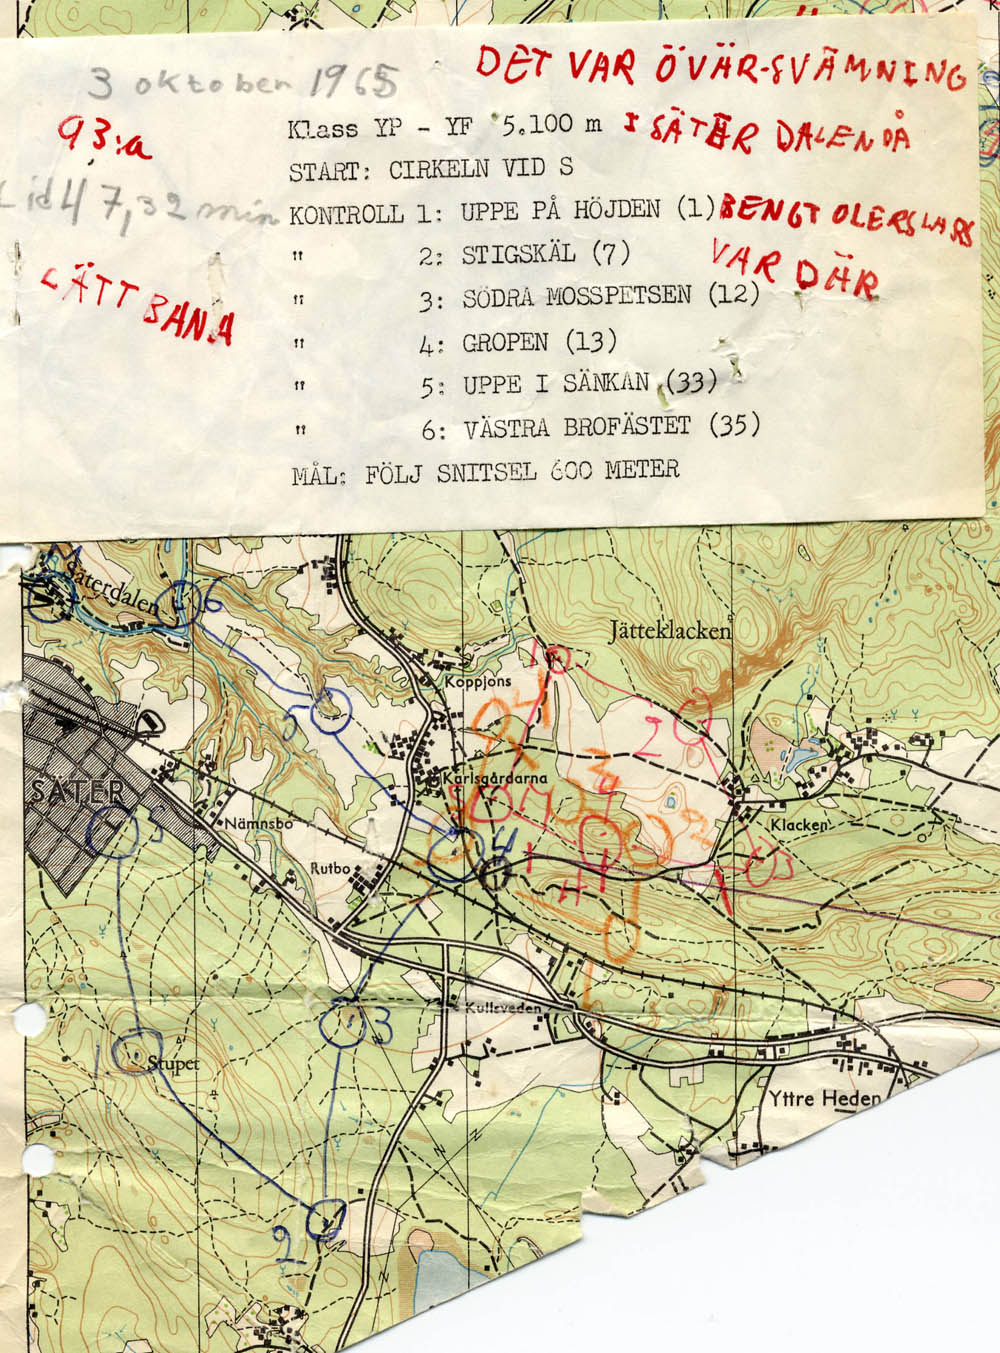 3 oktober 1965
DET VAR ÖVÄR-SVÄMNING
I SÄTER DALEN DÅ
93:a
tid 47,32 min
LÄTT BANA
BENGT OLERSLARS
VAR DÄR
Klass YP - YF 5.100 m
START: CIRKELN VID S
KONTROLL 1: UPPE PÅ HÖJDEN (1)
" 2: STIGSKÄL (7)
" 3: SÖDRA MOSSPETSEN (12)
" 4: GROPEN (13)
" 5: UPPE I SÄNKAN (33)
" 6: VÄSTRA BROFÄSTET (35)
MÅL: FÖLJ SNITSEL 600 METER
Säterdalen
6
Jätteklacken
1
Koppjons
5
2
SÄTER
Karlsgårdarna
Nämnsbo
Klacken
S
4
3
Rutbo
Kullsveden
3
1
Stupet
Yttre Heden
2